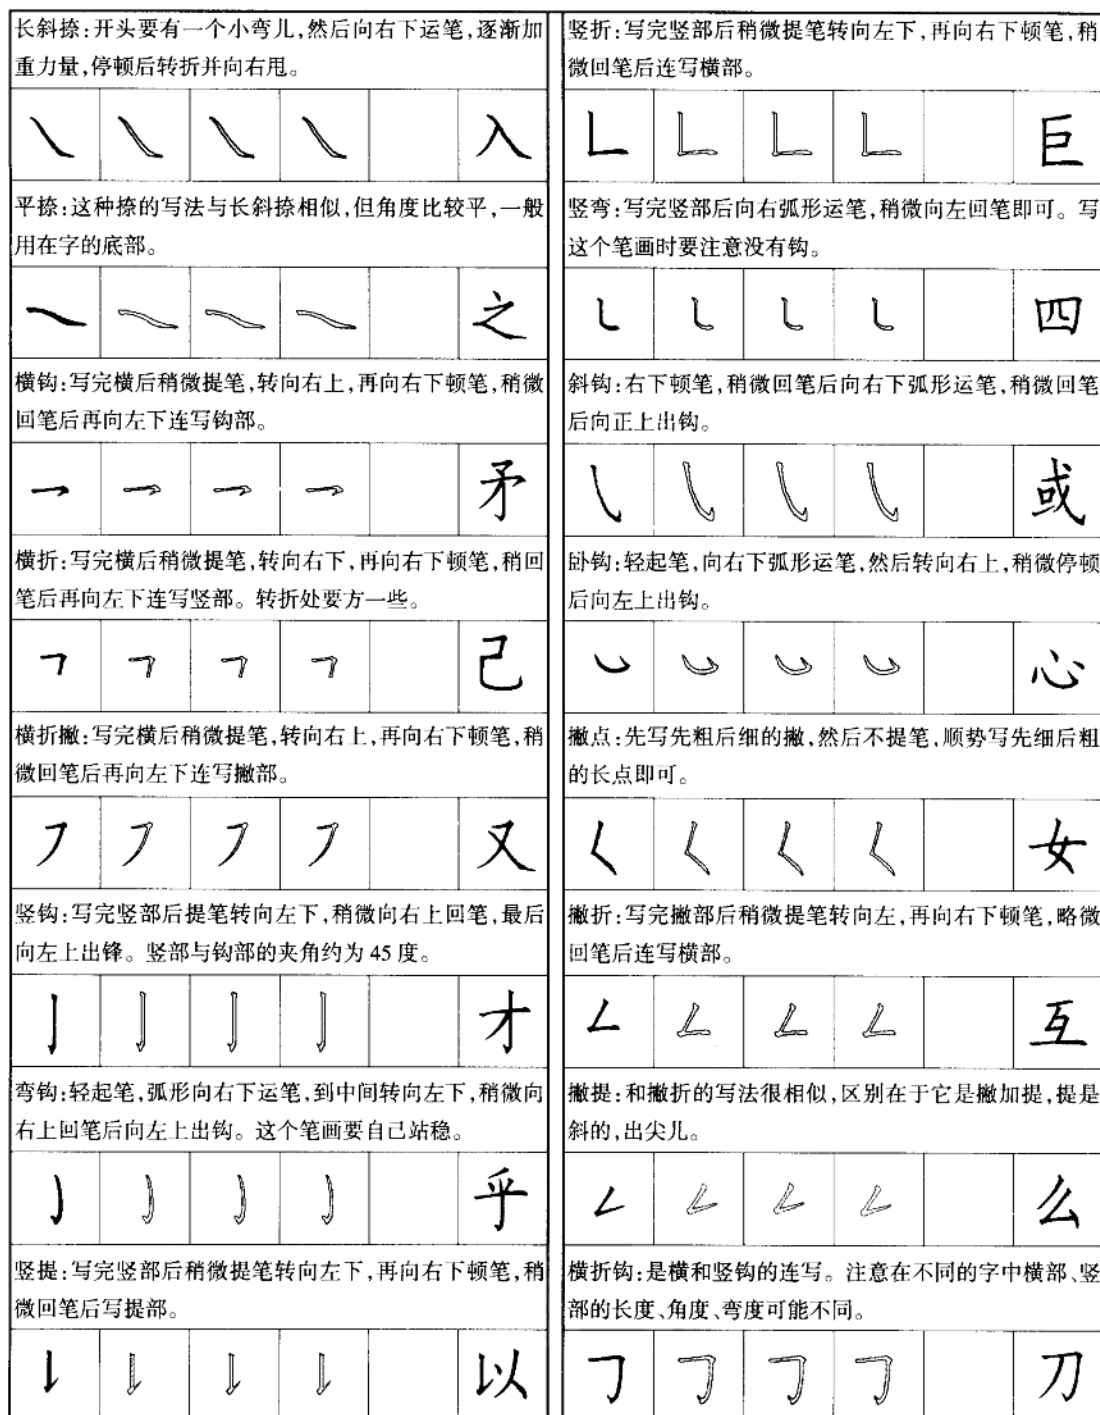 长斜捺:开头要有一个小弯儿,然后向右下运笔,逐渐加
重力量,停顿后转折并向右甩。
入
平捺:这种捺的写法与长斜捺相似,但角度比较平,一般
用在字的底部。
之
横钩:写完横后稍微提笔,转向右上,再向右下顿笔,稍微
回笔后再向左下连写钩部。
矛
横折:写完横后稍微提笔,转向右下,再向右下顿笔,稍回
笔后再向左下连写竖部。转折处要方一些。
己
横折撇:写完横后稍微提笔,转向右上,再向右下顿笔,稍
微回笔后再向左下连写撇部。
又
竖钩:写完竖部后提笔转向左下,稍微向右上回笔,最后
向左上出锋。竖部与钩部的夹角约为 45 度。
才
弯钩:轻起笔,弧形向右下运笔,到中间转向左下,稍微向
右上回笔后向左上出钩。这个笔画要自己站稳。
乎
竖提:写完竖部后稍微提笔转向左下,再向右下顿笔,稍
微回笔后写提部。
以
竖折:写完竖部后稍微提笔转向左下,再向右下顿笔,稍
微回笔后连写横部。
巨
竖弯:写完竖部后向右弧形运笔,稍微向左回笔即可。写
这个笔画时要注意没有钩。
四
斜钩:右下顿笔,稍微回笔后向右下弧形运笔,稍微回笔
后向正上出钩。
或
卧钩:轻起笔,向右下弧形运笔,然后转向右上,稍微停顿
后向左上出钩。
心
撇点:先写先粗后细的撇,然后不提笔,顺势写先细后粗
的长点即可。
女
撇折:写完撇部后稍微提笔转向左,再向右下顿笔,略微
回笔后连写横部。
互
撇提:和撇折的写法很相似,区别在于它是撇加提,提是
斜的,出尖儿。
么
横折钩:是横和竖钩的连写。注意在不同的字中横部、竖
部的长度、角度、弯度可能不同。
刀